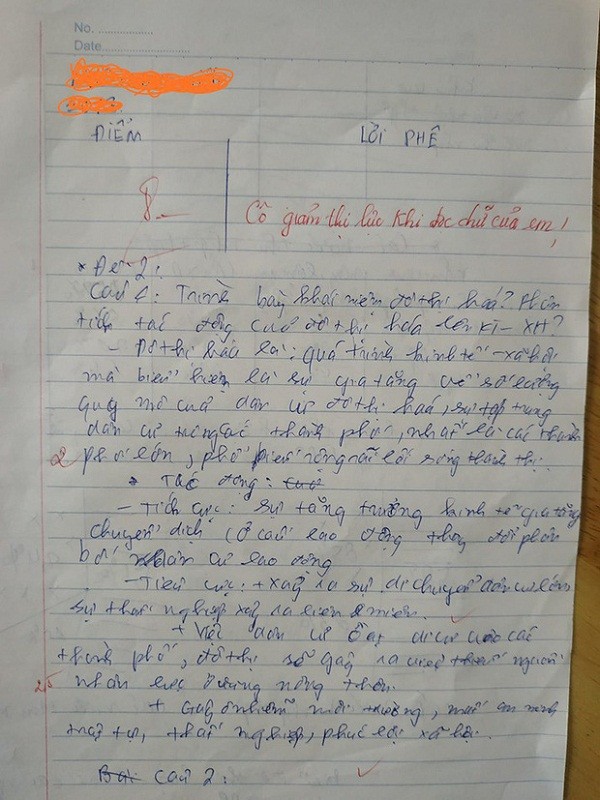 No.
Date
ĐIỂM
LỜI PHÊ
8
Cô giảm thị lực khi đọc chữ của em!
* Đề 2:
Câu 1: Trình bày khái niệm đô thị hoá? Phân
tích tác động của đô thị hóa lên KT - XH?
- Đô thị hóa là: quá trình kinh tế - xã hội
mà biểu hiện là sự gia tăng về số lượng
quy mô của dân cư đô thị hoá, sự tập trung
dân cư trong các thành phố, nhất là các thành
2 phố lớn, phổ biến rộng rãi lối sống thành thị.
* Tác động:
- Tích cực: sự tăng trưởng kinh tế gia tăng
chuyển dịch cơ cấu lao động thay đổi phân
bố dân cư lao động
- Tiêu cực: + xảy ra sự di chuyển dân cư lớn
sự thất nghiệp xảy ra liên miên.
+ Việc dân cư ồ ạt di cư vào các
thành phố, đô thị sẽ gây ra việc nguồn
25 nhân lực ở vùng nông thôn.
+ Gây ô nhiễm môi trường, mất an ninh
trật tự, thất nghiệp, phúc lợi xã hội.
Bài câu 2: